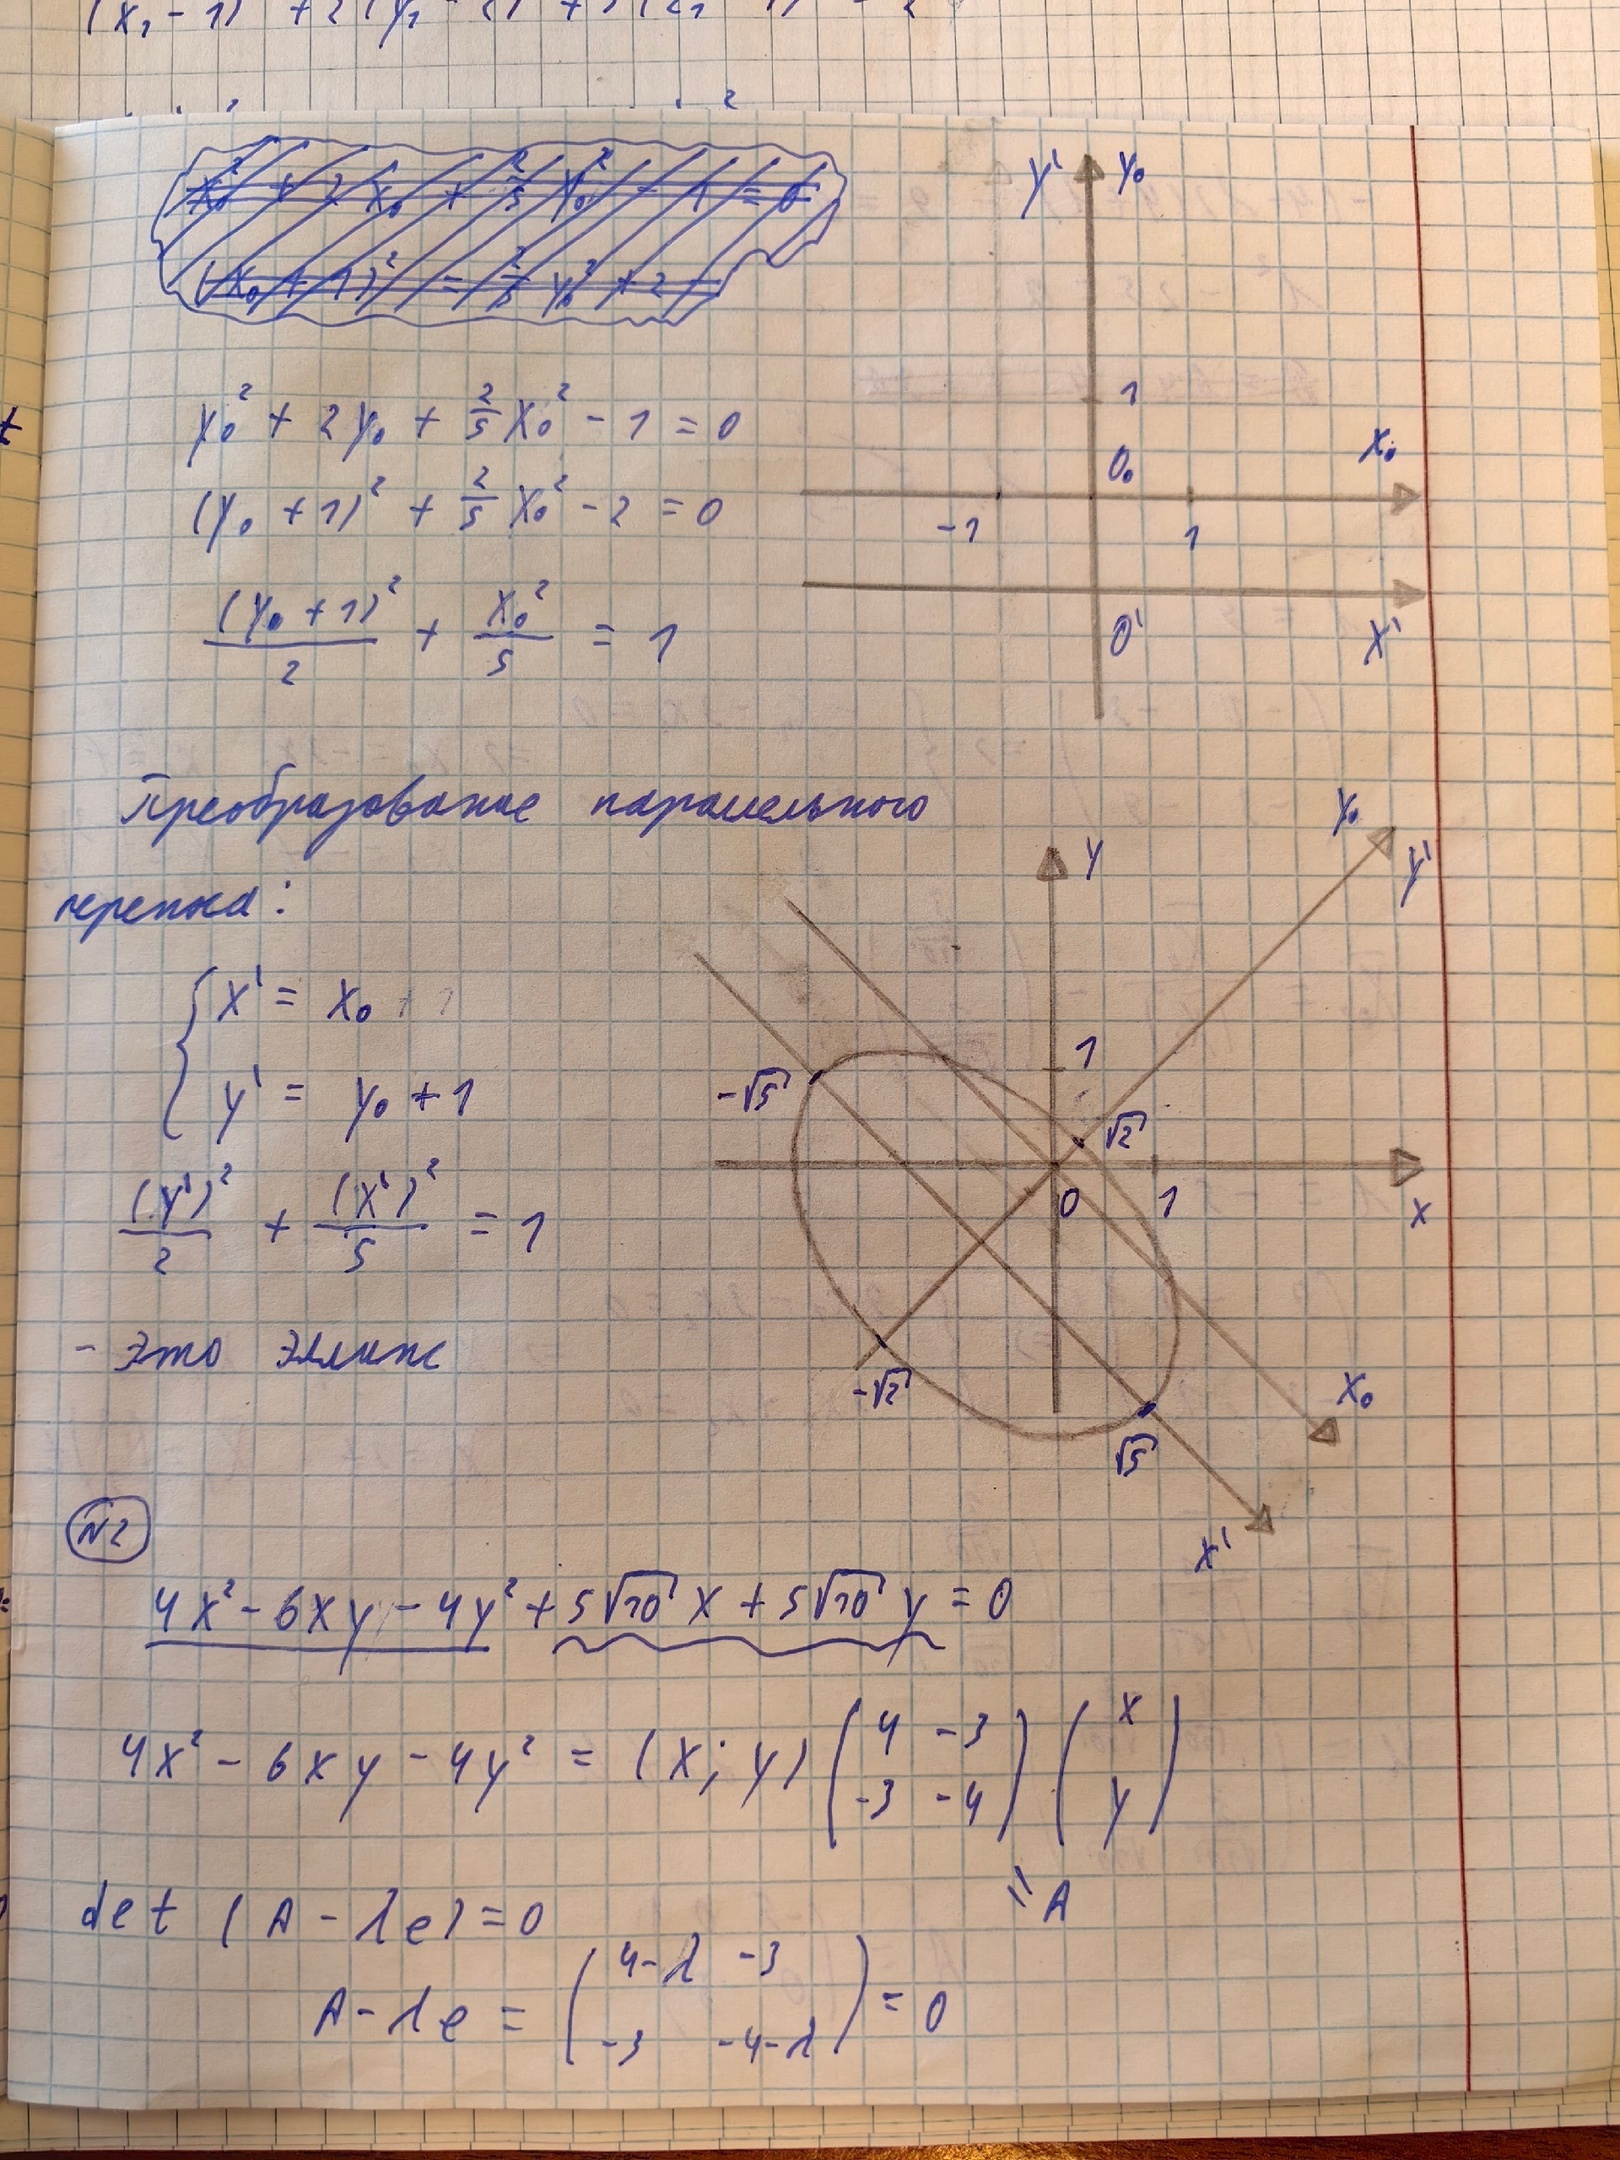 y₀² + 2y₀ + 2/5 x₀² - 1 = 0
(y₀ + 1)² + 2/5 x₀² - 2 = 0
(y₀ + 1)²/2 + x₀²/5 = 1
y' y₀
1
0₀ x₀
-1 1
0' x'
Преобразование паралельного
переноса:
{ x' = x₀
y' = y₀ + 1
(y')²/2 + (x')²/5 = 1
- Это эллипс
y₀
y y'
1
-√5
√2
0 1 x
-√2
x₀
√5
x'
N2
4x² - 6xy - 4y² + 5√10 x + 5√10 y = 0
4x² - 6xy - 4y² = (x; y) ( 4 -3 ) ( x )
( -3 -4 ) ( y )
= A
det (A - λe) = 0
A - λe = ( 4-λ -3 ) = 0
( -3 -4-λ )